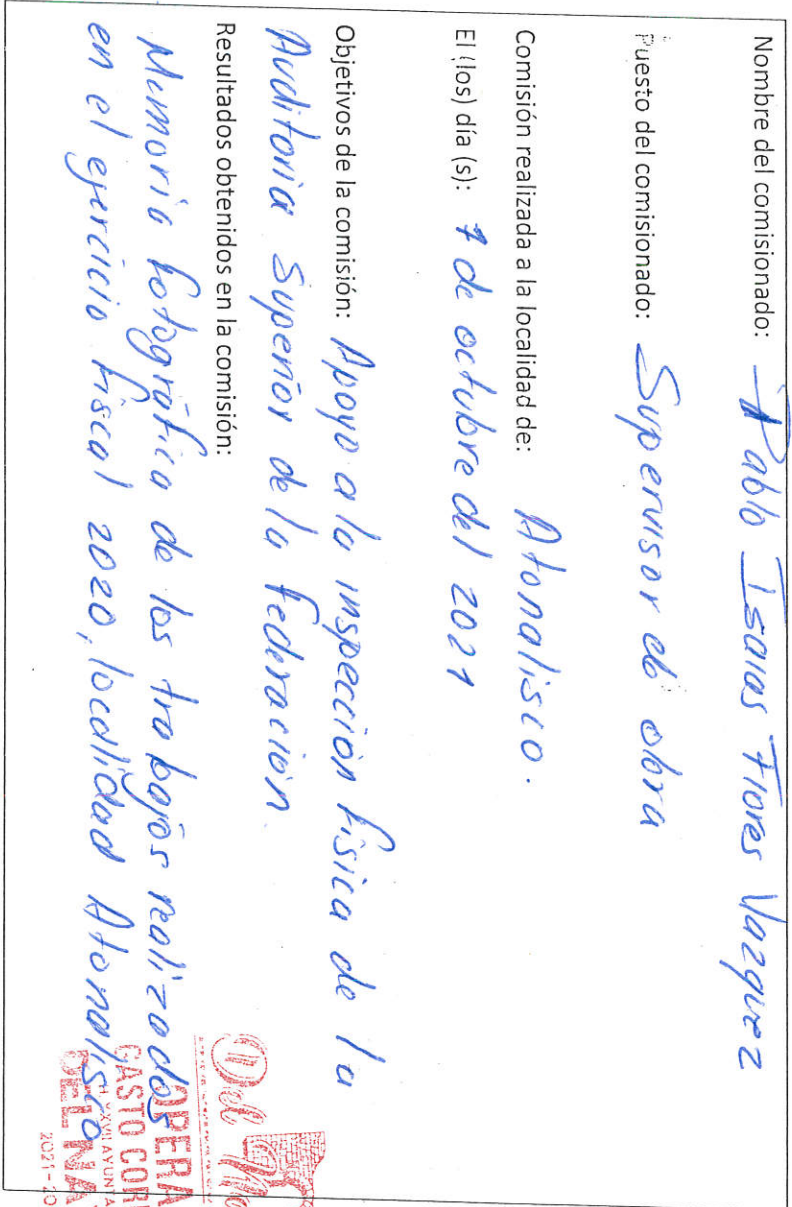 Nombre del comisionado: Pablo Isaias Flores Vazquez
Puesto del comisionado: Supervisor de obra
Comisión realizada a la localidad de: Atonalisco.
El (los) día (s): 7 de octubre del 2021
Objetivos de la comisión: Apoyo a la inspección física de la
Auditoria Superior de la Federación
Resultados obtenidos en la comisión:
Memoria fotografica de los trabajos realizados
en el ejercicio fiscal 2020, localidad Atonalisco
OPERA
GASTO CORR
AYUNTA
DEL NA
2021-20